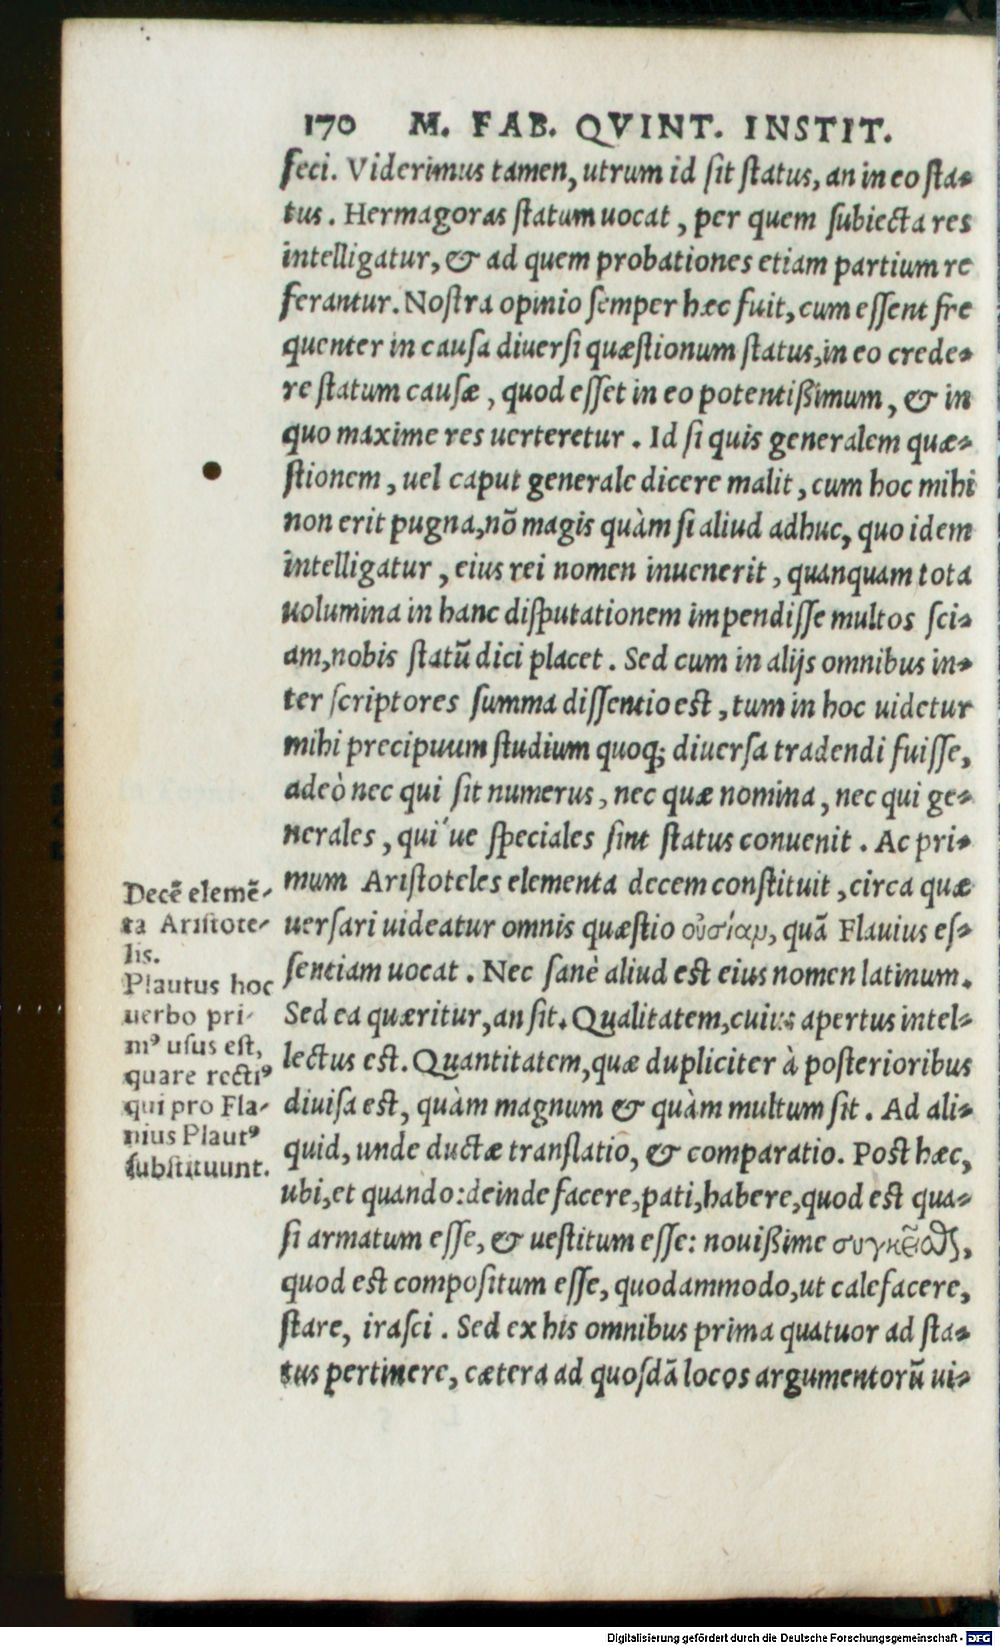 170 M. FAB. QVINT. INSTIT.
feci. Viderimus tamen, utrum id ſit ſtatus, an in eo ſta-
tus. Hermagoras ſtatum uocat, per quem ſubiecta res
intelligatur, & ad quem probationes etiam partium re
ferantur. Noſtra opinio ſemper hæc fuit, cum eſſent fre
quenter in cauſa diuerſi quæſtionum ſtatus, in eo crede-
re ſtatum cauſæ, quod eſſet in eo potentißimum, & in
quo maxime res uerteretur. Id ſi quis generalem quæ-
ſtionem, uel caput generale dicere malit, cum hoc mihi
non erit pugna, nō magis quàm ſi aliud adhuc, quo idem
intelligatur, eius rei nomen inuenerit, quanquam tota
uolumina in hanc diſputationem impendiſſe multos ſci-
am, nobis ſtatū dici placet. Sed cum in alijs omnibus in-
ter ſcriptores ſumma diſſentio eſt, tum in hoc uidetur
mihi precipuum ſtudium quoq; diuerſa tradendi fuiſſe,
adeò nec qui ſit numerus, nec quæ nomina, nec qui ge-
nerales, qui´ue ſpeciales ſint ſtatus conuenit. Ac pri-
mum Ariſtoteles elementa decem conſtituit, circa quæ
uerſari uideatur omnis quæſtio οὐσίαν, quā Flauius eſ-
ſentiam uocat. Nec ſanè aliud eſt eius nomen latinum.
Sed ea quæritur, an ſit. Qualitatem, cuius apertus intel-
lectus eſt. Quantitatem, quæ dupliciter à poſterioribus
diuiſa eſt, quàm magnum & quàm multum ſit. Ad ali-
quid, unde ductæ tranſlatio, & comparatio. Poſt hæc,
ubi, et quando: deinde facere, pati, habere, quod eſt qua-
ſi armatum eſſe, & ueſtitum eſſe: nouißime συγκεῖσθαι,
quod eſt compoſitum eſſe, quodammodo, ut calefacere,
ſtare, iraſci. Sed ex his omnibus prima quatuor ad ſta-
tus pertinere, cætera ad quoſdā locos argumentorū ui-
Decē elemē-
ta Ariſtote-
lis.
Plautus hoc
uerbo pri-
mꝰ uſus eſt,
quare rectiꝰ
qui pro Fla-
uius Plautꝰ
ſubſtituunt.
Digitalisierung gefördert durch die Deutsche Forschungsgemeinschaft - DFG